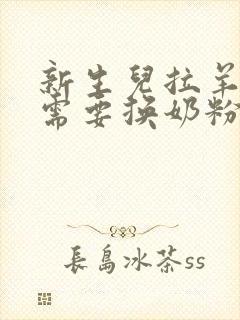 新生兒拉羊
需要換奶粉
長島冰茶ss